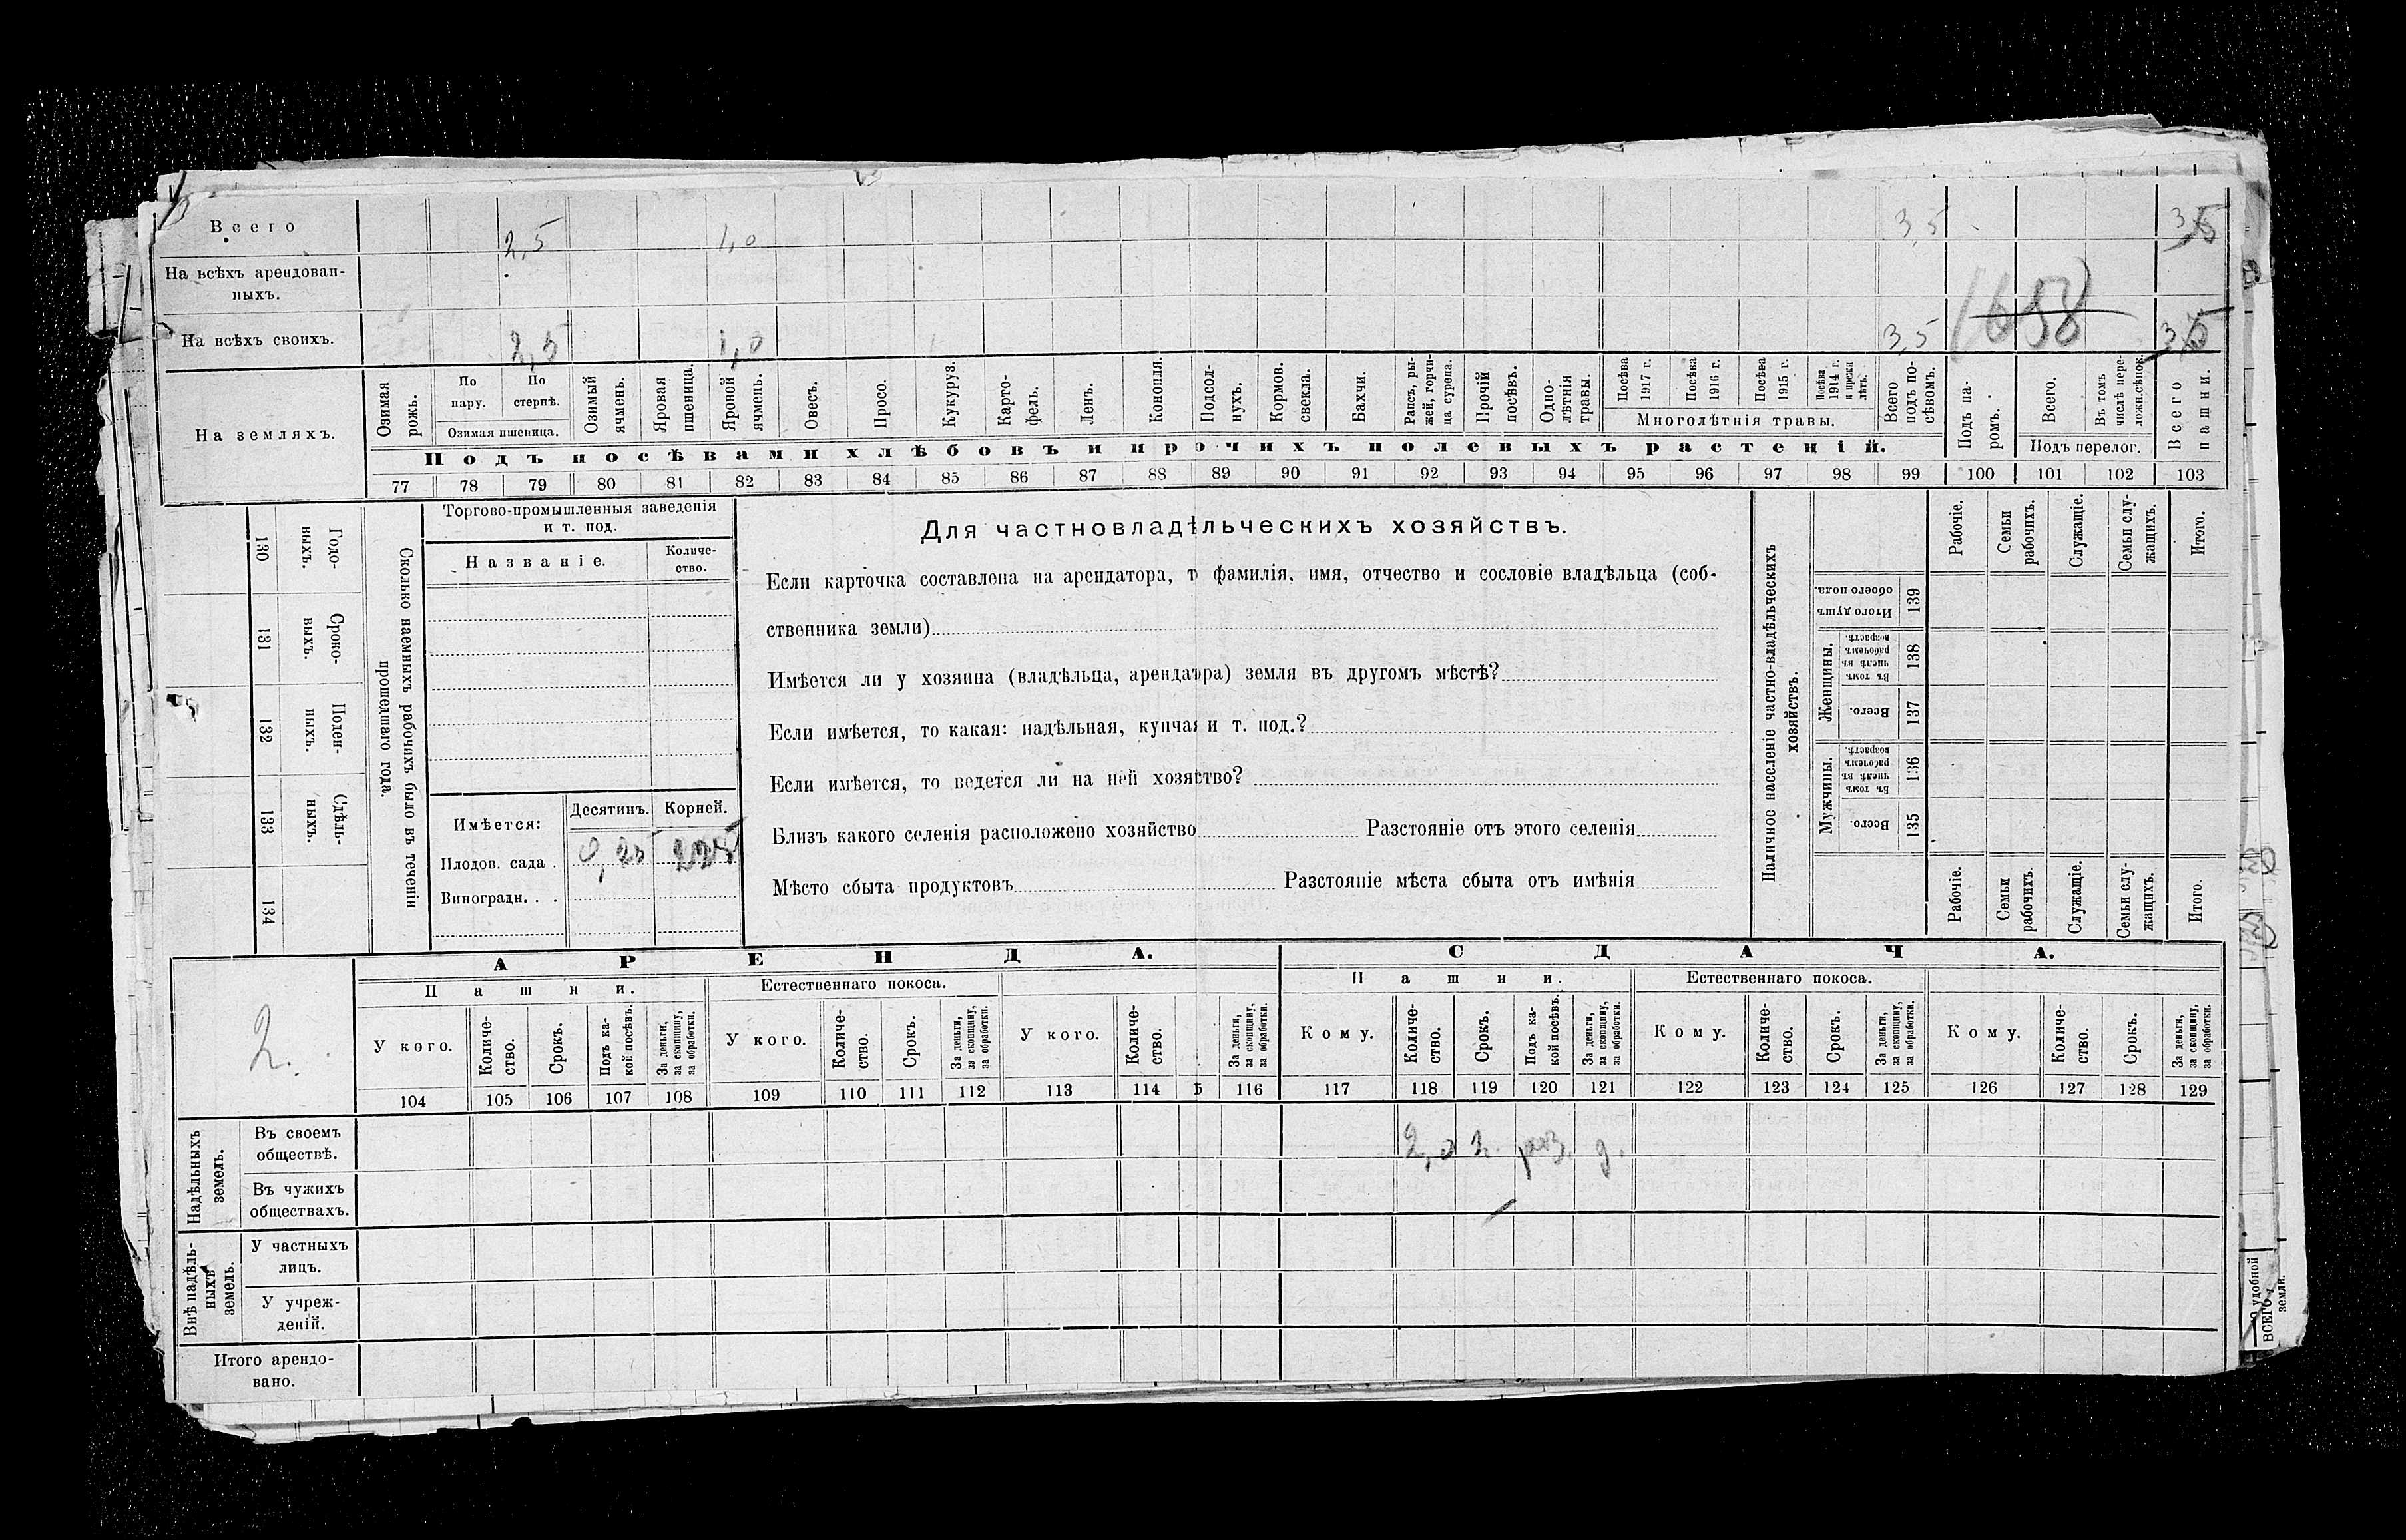 Всего 2,5 1,0 3,5 3,5
На всѣхъ арендован-
ныхъ.
1658
На всѣхъ своихъ. 2,5 1,0 3,5 3,5
На земляхъ.
Озимая рожь.
По пару.
По стернѣ.
Озимая пшеница.
Озимый ячмень.
Яровая пшеница.
Яровой ячмень.
Овесъ.
Просо.
Кукуруз.
Карто-
фель.
Ленъ.
Конопля.
Подсол-
нухъ.
Кормов.
свекла.
Бахчи.
Рапсъ, ры-
жей, горчи-
ца сурепа.
Прочій
посѣвъ.
Одно-
лѣтнія
травы.
Посѣва 1917 г.
Посѣва 1916 г.
Посѣва 1915 г.
Посѣва 1914 г. и прежн лѣтъ.
Многолѣтнія травы.
Всего
подъ по-
сѣвомъ.
Подъ па-
ромъ.
Всего.
Въ томъ
числѣ пере-
ложн.сѣнок.
Подъ перелог.
Всего
пашни.
Подъ посѣвами хлѣбовъ и прочихъ полевыхъ растеній.
77 78 79 80 81 82 83 84 85 86 87 88 89 90 91 92 93 94 95 96 97 98 99 100 101 102 103
Годо-
ныхъ.
130
Сроко-
ныхъ.
131
Поден-
ныхъ.
132
Сдѣль-
ныхъ.
133
134
Сколько наемныхъ рабочихъ было въ теченіи
прошедшаго года.
Торгово-промышленныя заведенія
и т. под.
Названіе.
Количе-
ство.
Имѣется: Десятинъ. Корней.
Плодов. сада . 0,25 225
Виноградн. . .
Для частновладѣльческихъ хозяйствъ.
Если карточка составлена на арендатора, т фамилія, имя, отчество и сословіе владѣльца (соб-
ственника земли)
Имѣется ли у хозяина (владѣльца, арендатора) земля въ другомъ мѣстѣ?
Если имѣется, то какая: надѣльная, купчая и т. под.?
Если имѣется, то ведется ли на ней хозяйство?
Близъ какого селенія расположено хозяйство Разстояніе отъ этого селенія
Мѣсто сбыта продуктовъ Разстояніе мѣста сбыта отъ имѣнія
Наличное населеніе частно-владѣльческихъ
хозяйствъ.
Рабочіе.
Семьи
рабочихъ.
Служащіе.
Семьи слу-
жащихъ.
Итого.
Итого душъ
обоего пола.
139
Женщины.
Въ томъ
числѣ въ
рабочемъ
возрастѣ.
138
Всего.
137
Мужчины.
Въ томъ
числѣ въ
рабочемъ
возрастѣ.
136
Всего.
135
Рабочіе.
Семьи
рабочихъ.
Служащіе.
Семьи слу-
жащихъ.
Итого.
АРЕНДА. СДАЧА.
Пашни. Естественнаго покоса. Пашни. Естественнаго покоса.
2.
У кого.
Количе-
ство.
Срокъ.
Подъ ка-
кой посѣвъ.
За деньги,
за скопщину,
за обработки.
У кого.
Количе-
ство.
Срокъ.
За деньги,
за скопщину,
за обработки.
У кого.
Количе-
ство.
За деньги,
за скопщину,
за обработки.
Кому.
Количе-
ство.
Срокъ.
Подъ ка-
кой посѣвъ.
За деньги,
за скопщину,
за обработки.
Кому.
Количе-
ство.
Срокъ.
За деньги,
за скопщину,
за обработки.
Кому.
Количе-
ство.
Срокъ.
За деньги,
за скопщину,
за обработки.
104 105 106 107 108 109 110 111 112 113 114 5 116 117 118 119 120 121 122 123 124 125 126 127 128 129
Надѣльныхъ
земель.
Въ своемъ
обществѣ.
2,0 2. раз. д.
Въ чужихъ
обществахъ.
Внѣ надѣль-
ныхъ
земель.
У частныхъ
лицъ.
У учреж-
деній.
Итого арендо-
вано.
ВСЕГО удобной
земли.